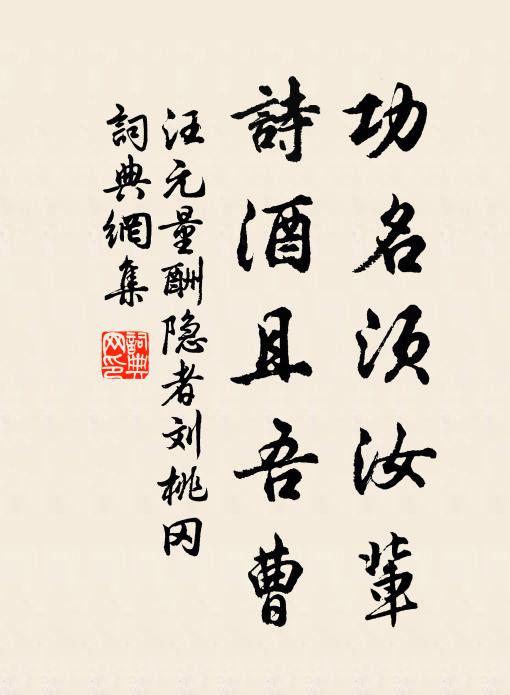 功名须汝輩
詩酒且吾曹
汪元量酬隐者刘桃冈
詞典網集
詞典网印